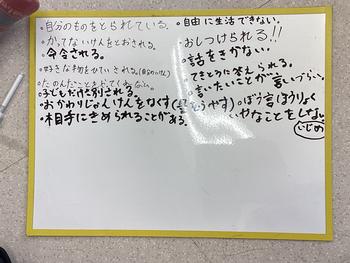 ・自分のものをとられている。
・かってないけんをとおされる。
・命令される。
・好きな物をせいげんされる。
・たのんだことを
・子どもだけ区別される。
・おかわりじゃんけんをなくす
・相手にきめられることがある。
・自由に生活できない。
・おしつけられる!!
・話をきかない。
てきとうに答えられる。
・言いたいことが言いづらい。
・ぼう言ぼうりょく
いやなことをしない
いじめ